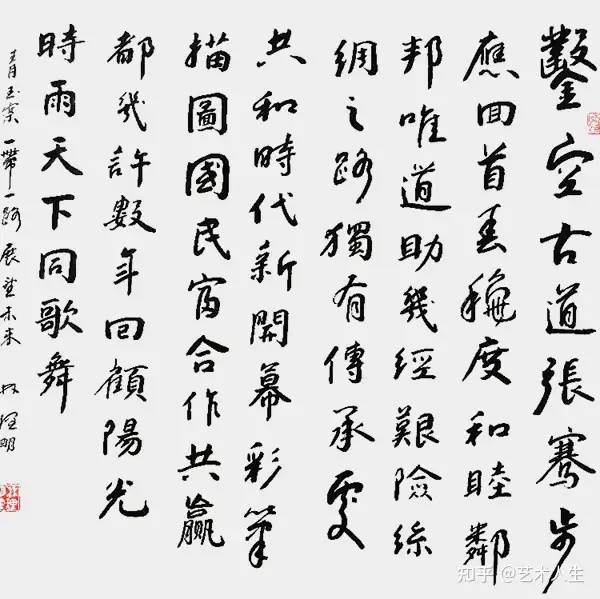 鑿空古道張騫步
應回首春穐度和睦鄰
邦唯道助幾經艱險絲
綢之路獨有傳承處
共和時代新開幕彩筆
描圖國民富合作共贏
都幾許數年回顧陽光
時雨天下同歌舞
青玉案一帶一路展望未來 明
知乎 @艺术人生